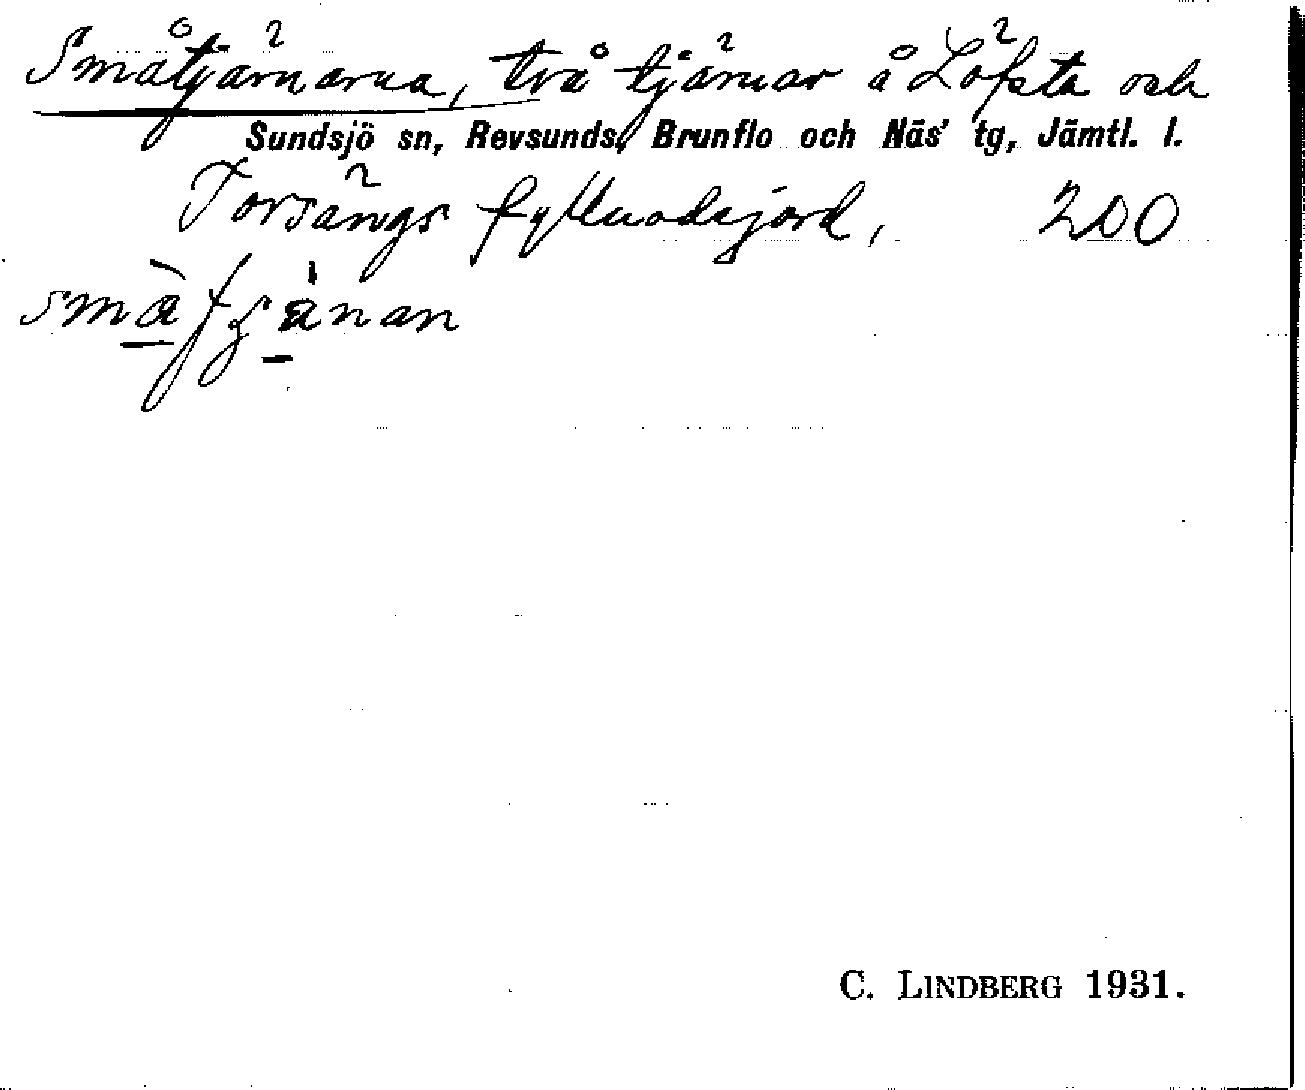 Småtjärnarna, två tjärnar å Löfsta och
Sundsjö sn, Revsunds, Brunflo och Näs' tg, Jämtl. l.
Torsängs fyllnadsjord, 200
C. LINDBERG 1931.